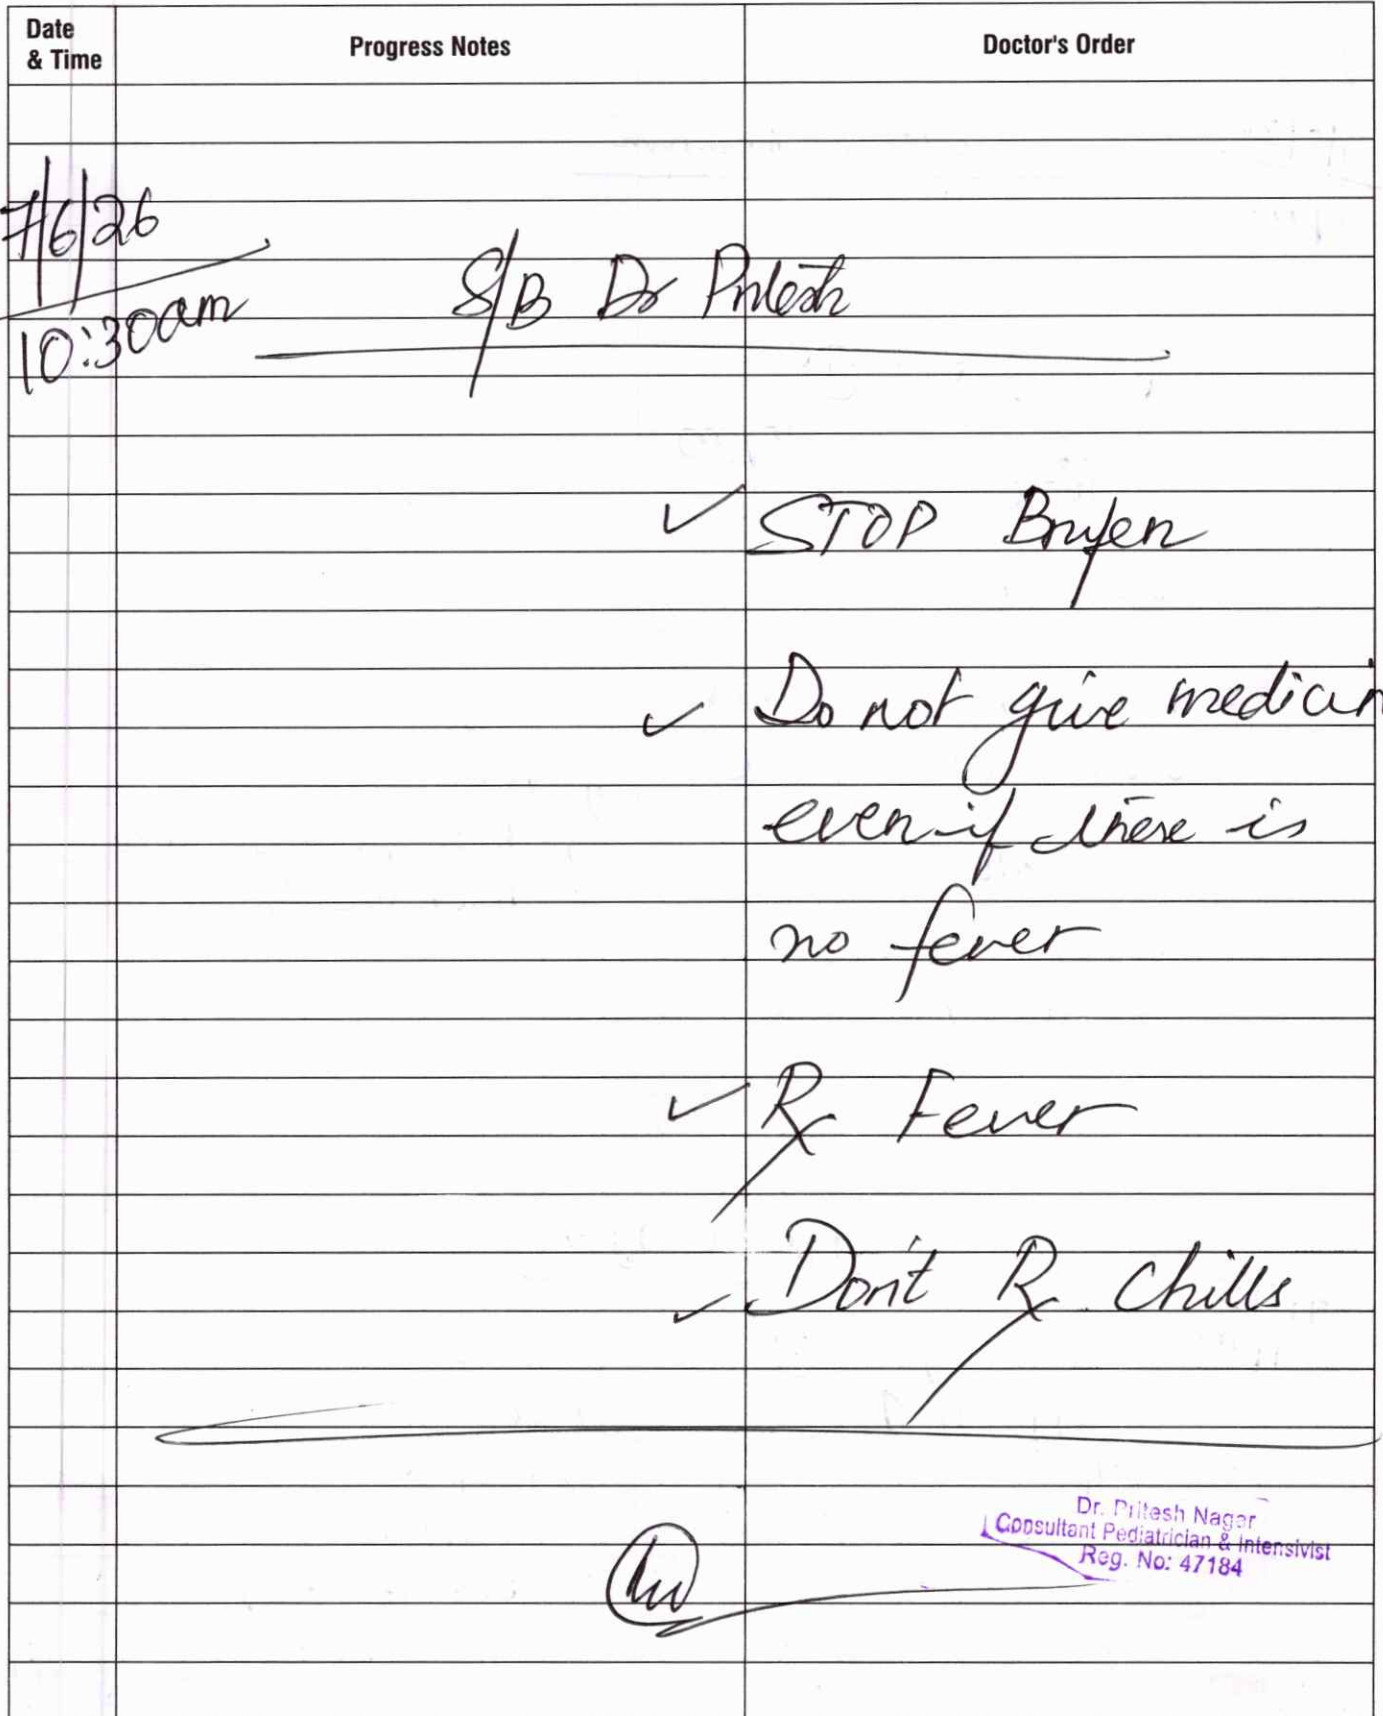 Date
& Time
Progress Notes
Doctor's Order
7/6/26
10:30am
S/B Dr Pritesh
✓ STOP Brufen
✓ Do not give medicin
even if there is
no fever
✓ Rx Fever
✓ Don't Rx Chills
Dr. Pritesh Nagar
Consultant Pediatrician & Intensivist
Reg. No: 47184